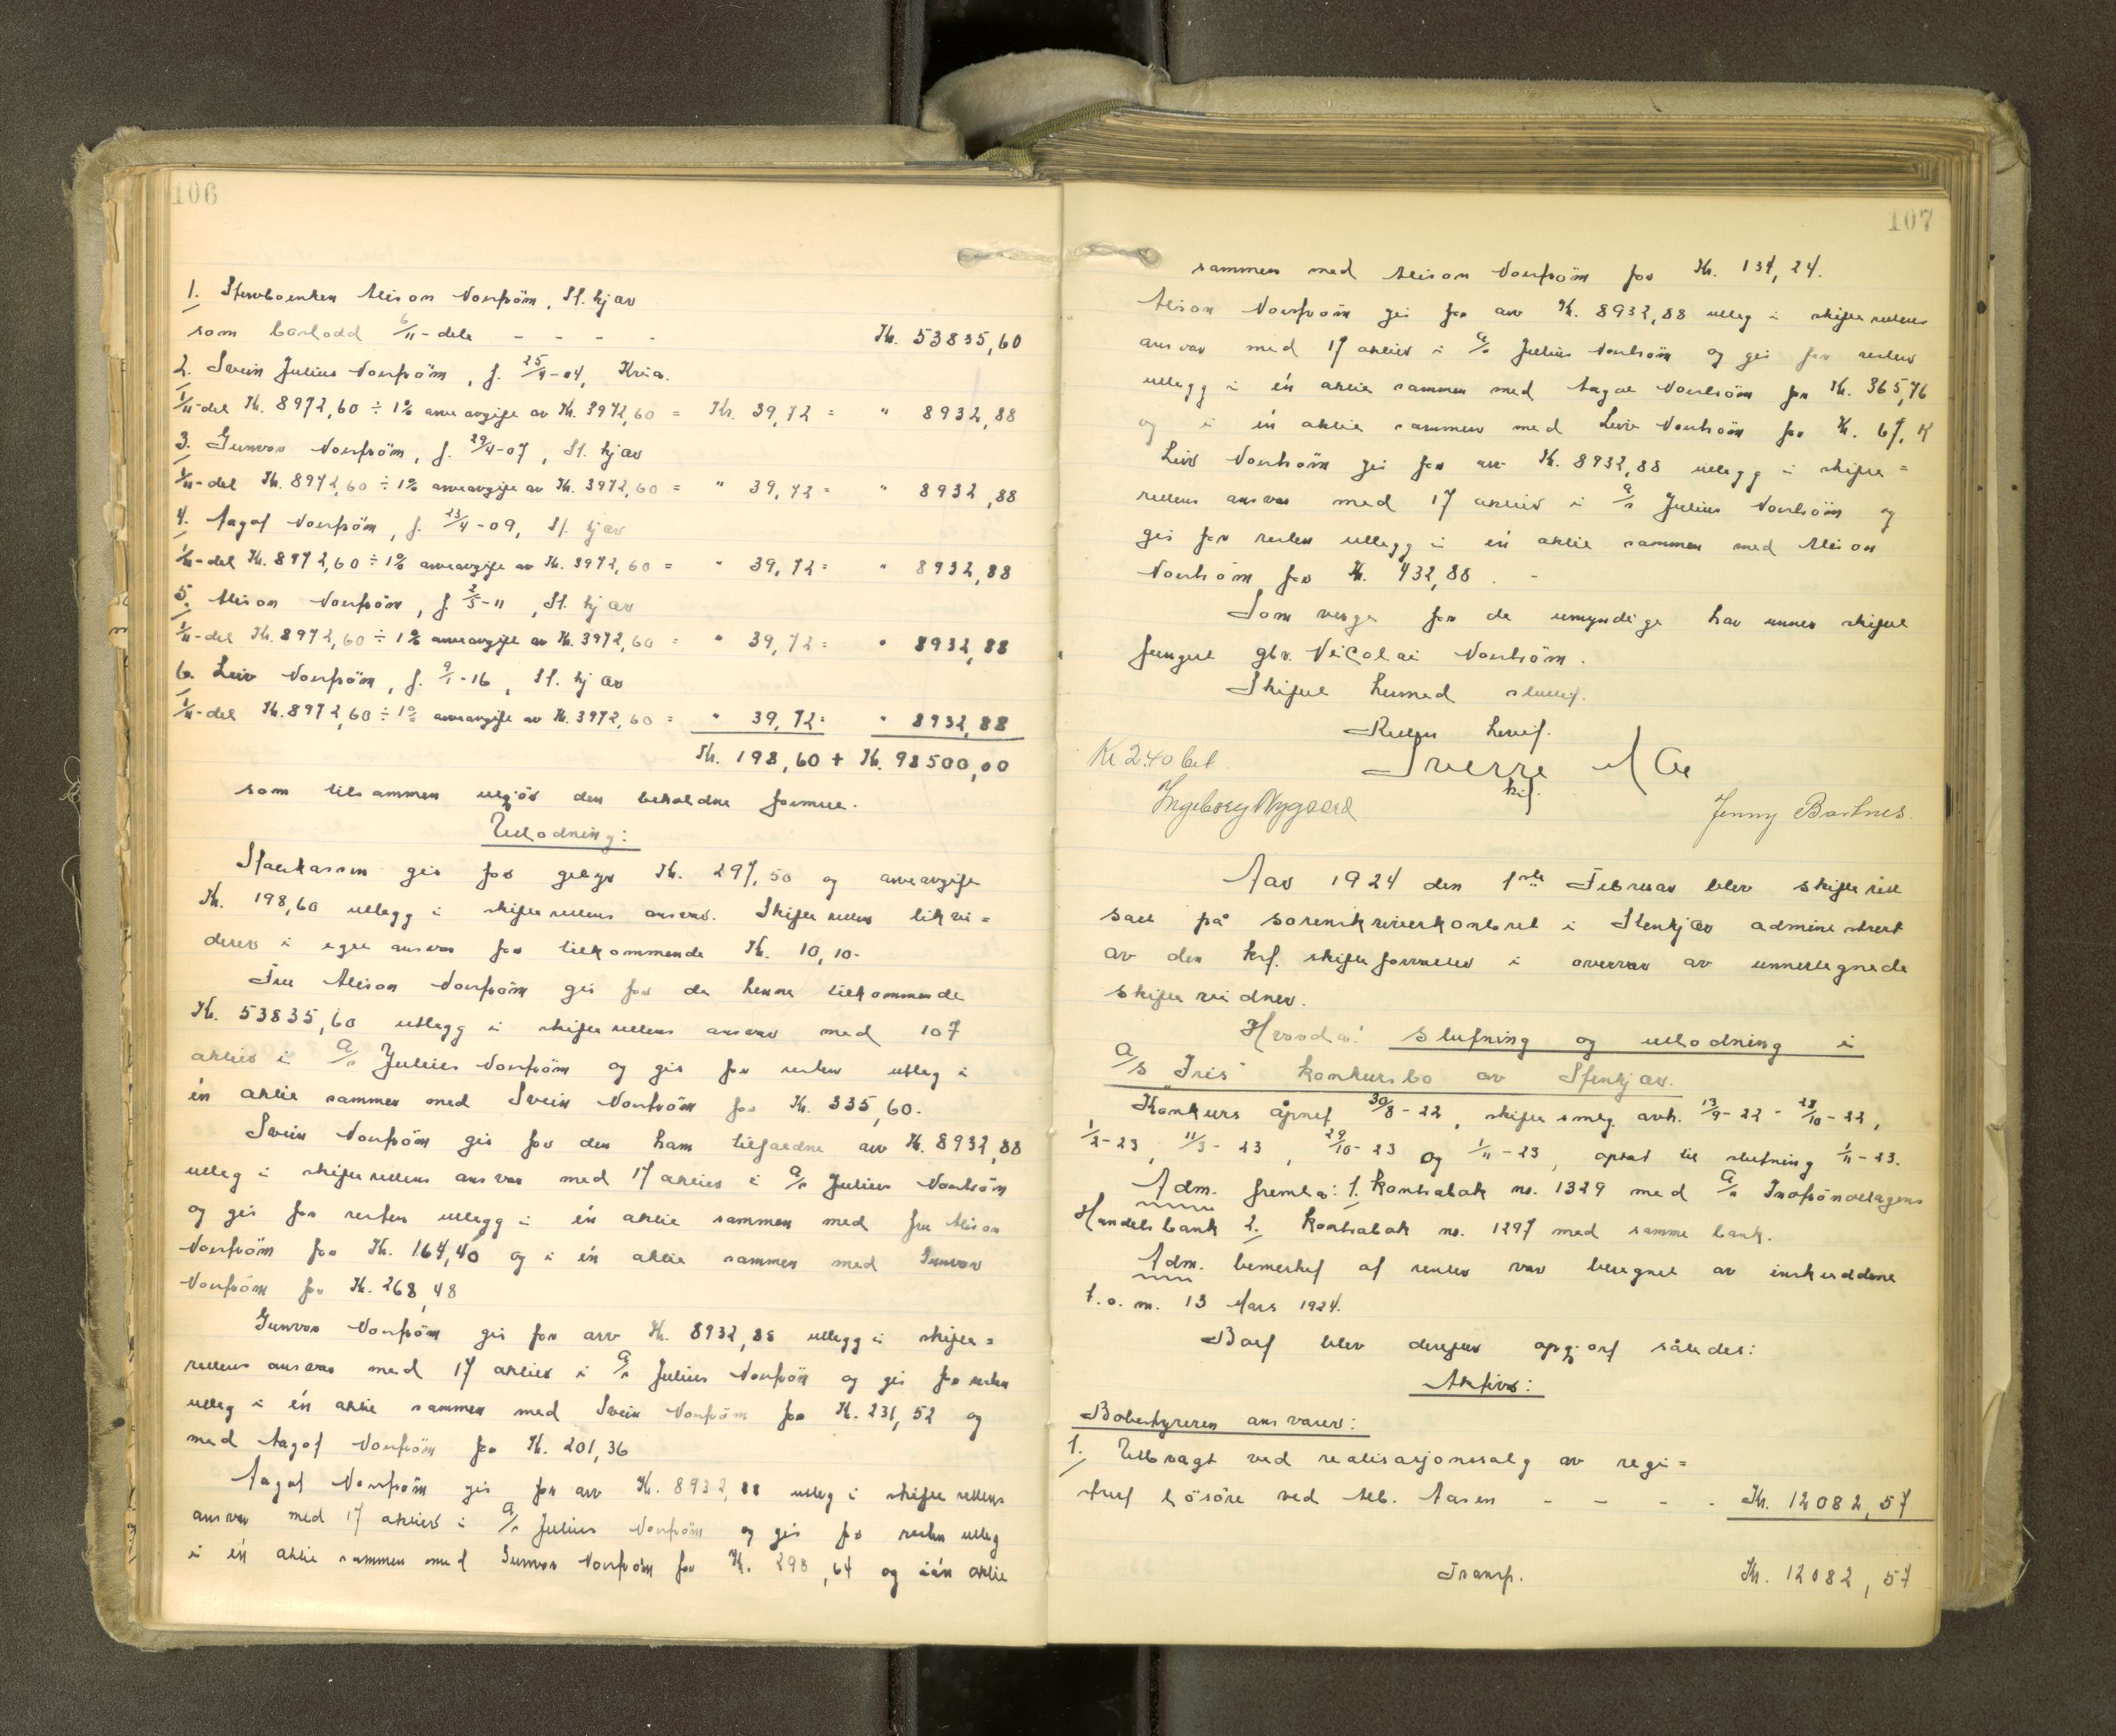 106
1. Stervboenken Alison Vorström, St.kjær
som boslodd 6/11-dele - - - - Kr. 53835,60
2. Svein Julius Vorström, f. 25/4-04, Kr.ia.
1/11-del Kr. 8972,60 ÷ 1% arveavgift av Kr. 3972,60 = Kr. 39,72 = " 8932,88
3. Gunvor Vorström, f. 29/4-07, St.kjær
1/11-del Kr. 8972,60 ÷ 1% arveavgift av Kr. 3972,60 = " 39,72 = " 8932,88
4. Aagot Vorström, f. 23/4-09, St.kjær
1/11-del Kr. 8972,60 ÷ 1% arveavgift av Kr. 3972,60 = " 39,72 = " 8932,88
5. Alison Vorström, f. 2/5-11, St.kjær
1/11-del Kr. 8972,60 ÷ 1% arveavgift av Kr. 3972,60 = " 39,72 = " 8932,88
6. Leiv Vorström, f. 9/1-16, St.kjær
1/11-del Kr. 8972,60 ÷ 1% arveavgift av Kr. 3972,60 = " 39,72 = " 8932,88
Kr. 198,60 + Kr. 98500,00
som tilsammen utgjör den beholdne formue.
Utlodning:
Statskassen gis for gebyr Kr. 297,50 og arveavgift
Kr. 198,60 utlegg i skifterettens ansvar. Skifteretten likvi=
derer i eget ansvar for tilkommende Kr. 10,10.
Fru Alison Vorström gis for de henne tilkommende
Kr. 53835,60 utlegg i skifterettens ansvar med 107
aktier i A/s Julius Vorström og gis for resten utleg i
én aktie sammen med Svein Vorström for Kr. 335,60.
Svein Vorström gis for den ham tilfaldne arv Kr. 8932,88
utleg i skifterettens ansvar med 17 aktier i A/s Julius Vorström
og gis for resten utlegg i én aktie sammen med fru Alison
Vorström for Kr. 164,40 og i én aktie sammen med Gunvor
Vorström for Kr. 268,48
Gunvor Vorström gis for arv Kr. 8932,88 utlegg i skifte=
rettens ansvar med 17 aktier i A/s Julius Vorström og gis for resten
utleg i én aktie sammen med Svein Vorström for Kr. 231,52 og
med Aagot Vorström for Kr. 201,36
Aagot Vorström gis for arv Kr. 8932,88 utleg i skifterettens
ansvar med 17 aktier i A/s Julius Vorström og gis for resten utleg
i én aktie sammen med Gunvor Vorström for Kr. 298,64 og i én aktie
107
sammen med Alison Vorström for Kr. 134,24.
Alison Vorström gis for arv Kr. 8932,88 utleg i skifterettens
ansvar med 17 aktier i A/s Julius Vorström og gis for resten
utlegg i én aktie sammen med Aagot Vorström for Kr. 365,76
og i én aktie sammen med Leiv Vorström for Kr. 67,
Leiv Vorström gis for arv Kr. 8932,88 utlegg i skifte=
rettens ansvar med 17 aktier i A/s Julius Vorström og
gis for resten utlegg i én aktie sammen med Alison
Vorström for Kr. 432,88. -
Som verge for de umyndige har under skiftet
fungert gbr. Nicolai Vorström.
Skiftet hermed sluttet.
Retten hevet.
Kr 2.40 bet.
Sverre Aa
kst.
Ingeborg Nygaard
Jenny Bartnes.
Aar 1924 den 1ste Februar blev skifterett
satt på sorenskriverkontoret i Stenkjær administrert
av den kst. skifteforvalter i overvær av undertegnede
skiftevidner.
Hvorda: slutning og utlodning i
A/S "Iris" konkursbo av Stenkjær.
Konkurs åpnet 30/8-22, skiftesmlg. avh. 13/9-22 - 28/10-22,
1/2-23, 11/3-23, 29/10-23 og 1/11-23, optat til slutning 1/11-23.
Adm. fremla: 1. Kontrabok no. 1329 med A/s Indtröndelagens
Handelsbank 2. Kontrabok no. 1297 med samme bank.
Adm. bemerket at renter var beregnet av inskuddene
t.o.m. 13 Mars 1924.
Boet blev derefter opgjort således:
Aktiva:
Bobestyreren ansvarer:
1. Utbragt ved realisasjonssalg av regi=
strert lösöre ved Alb. Aasen - - - - Kr. 12082,57
Transp. Kr. 12082,57